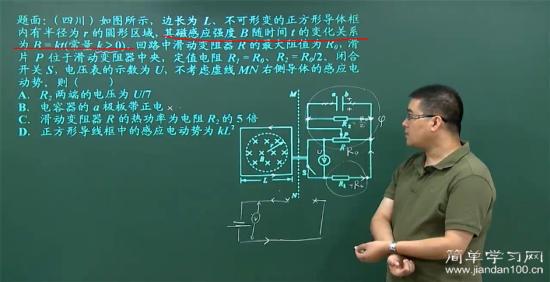 题面：（四川）如图所示，边长为 L、不可形变的正方形导体框
内有半径为 r 的圆形区域，其磁感应强度 B 随时间 t 的变化关系
为 B = kt(常量 k>0)。回路中滑动变阻器 R 的最大阻值为 R₀，滑
片 P 位于滑动变阻器中央，定值电阻 R₁= R₀、R₂= R₀/2。闭合
开关 S，电压表的示数为 U，不考虑虚线 MN 右侧导体的感应电
动势，则（ ）
A．R₂ 两端的电压为 U/7
B．电容器的 a 极板带正电 ×
C．滑动变阻器 R 的热功率为电阻 R₂ 的 5 倍
D．正方形导线框中的感应电动势为 kL²
M
a
b
R₂
P
R
R₀
φ
B
V
S
R₁
R₀
L
N
V
简单学习网
www.jiandan100.cn